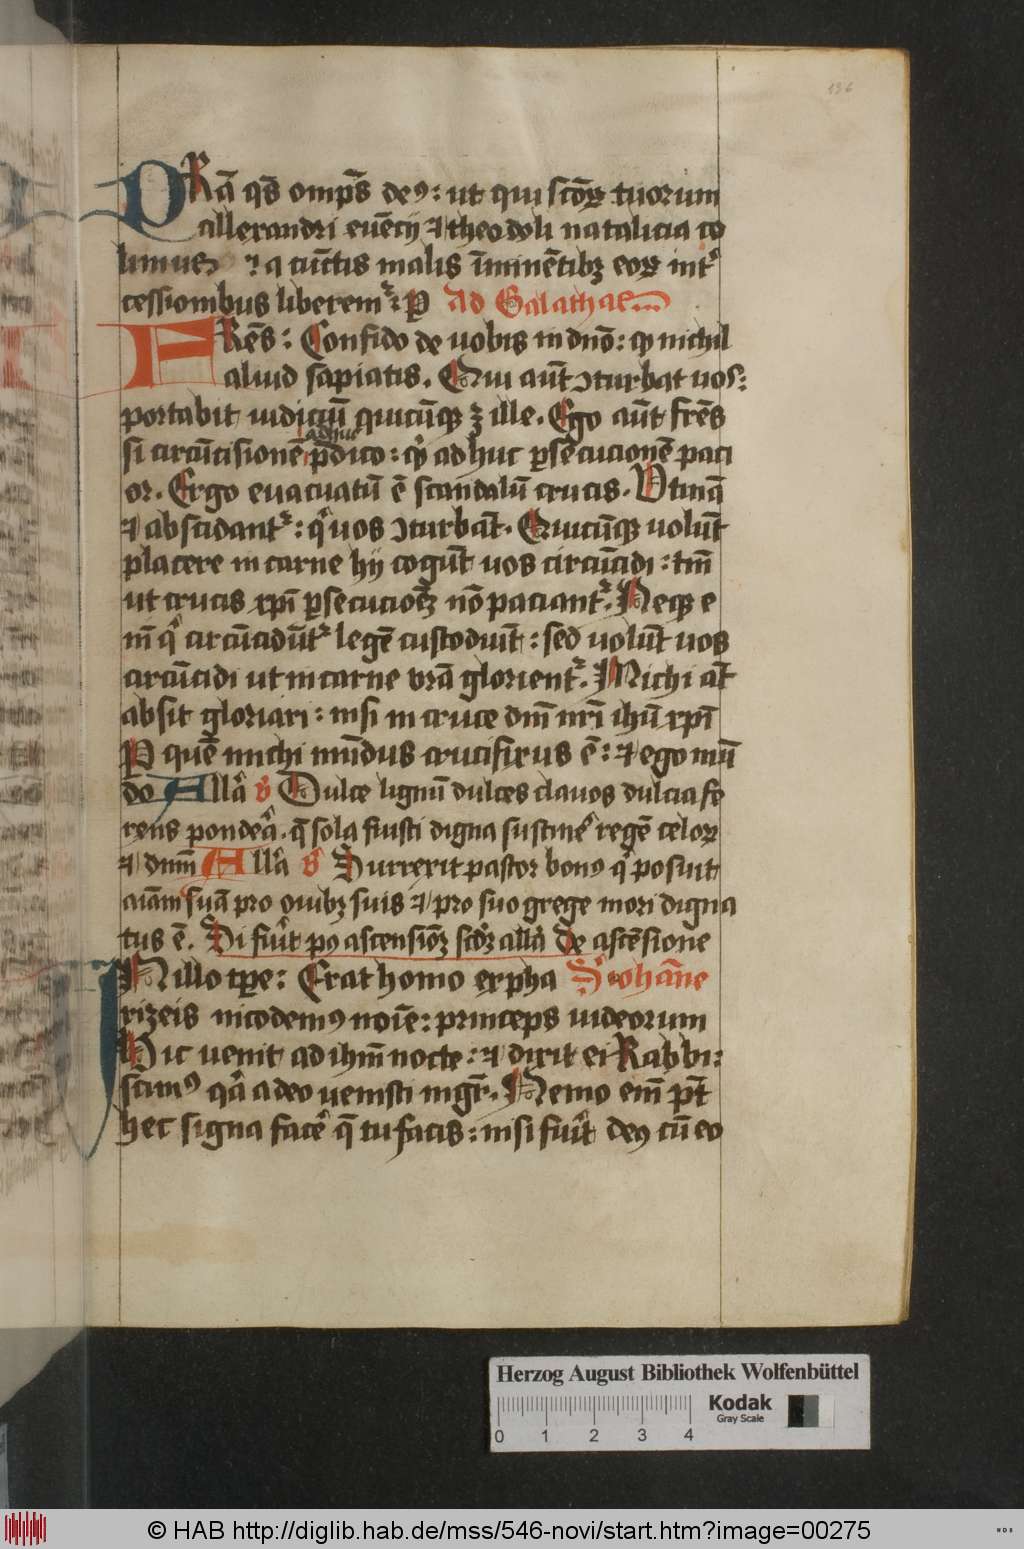 136
PRā qs̄ omp̄s deꝰ: ut qui scōꝝ tuorum
allexandri euēcij ⁊ theodoli natalicia co
limus ⁊ a cūctis malis īminētibꝫ eoꝝ int̉
cessionibus liberem̉: P Ad Galathas
FRēs: Confido de uobis in dn̄o: qꝫ nichil
aliud sapiatis. Qui aūt ↄturbat uos:
portabit iudiciū quicūqꝫ ꝫ ille. Ego aūt fr̄es
adhuc
si circūcisionē p̄dico: qͥ adhuc ꝑsecucionē paci
or. Ergo euacuatū ē scandalū crucis. Utinā
⁊ abscidant̉: qͥ uos ↄturbāt. Quicūqꝫ uolūt
placere in carne hij cogūt uos circūcidi: tm̄
ut crucis xp̄i ꝑsecucioēꝫ nō paciant̉. Neqꝫ e
nī qͥ circūcidūt̉ legē custodiūt: sed uolūt uos
circūcidi ut in carne vrā glorient̉. Michi āt
absit gloriari: nisi in cruce dn̄i nr̄i ihū xp̄i
P quē michi mūdus crucifixus ē: ⁊ ego mū
do Allā v̉ Dulce lignū dulces clauos dulcia fe
rens pondeā. q̄ sola fuisti digna sustinē regē celoꝝ
⁊ dn̄m Allā v̉ Surrexit pastor bonꝰ qͥ posuit
aīam suā pro ouibꝫ suis ⁊ pro suo grege mori digna
tus ē. Si fūit pꝰ ascensiōꝫ scdꝫ allā de ascēsione
IN illo tp̄e: Erat homo ex pha S iohāne
rizeis nicodemꝰ noīe: princeps iudeorum
Hic uenit ad ihm̄ nocte: ⁊ dixit ei Rabbi:
scimꝰ qā a deo uenisti mgr̄. Nemo eīm pt̄
hec signa facē q̄ tu facis: nisi fūit deꝰ cū eo
Herzog August Bibliothek Wolfenbüttel
Kodak
Gray Scale
0 1 2 3 4
© HAB http://diglib.hab.de/mss/546-novi/start.htm?image=00275